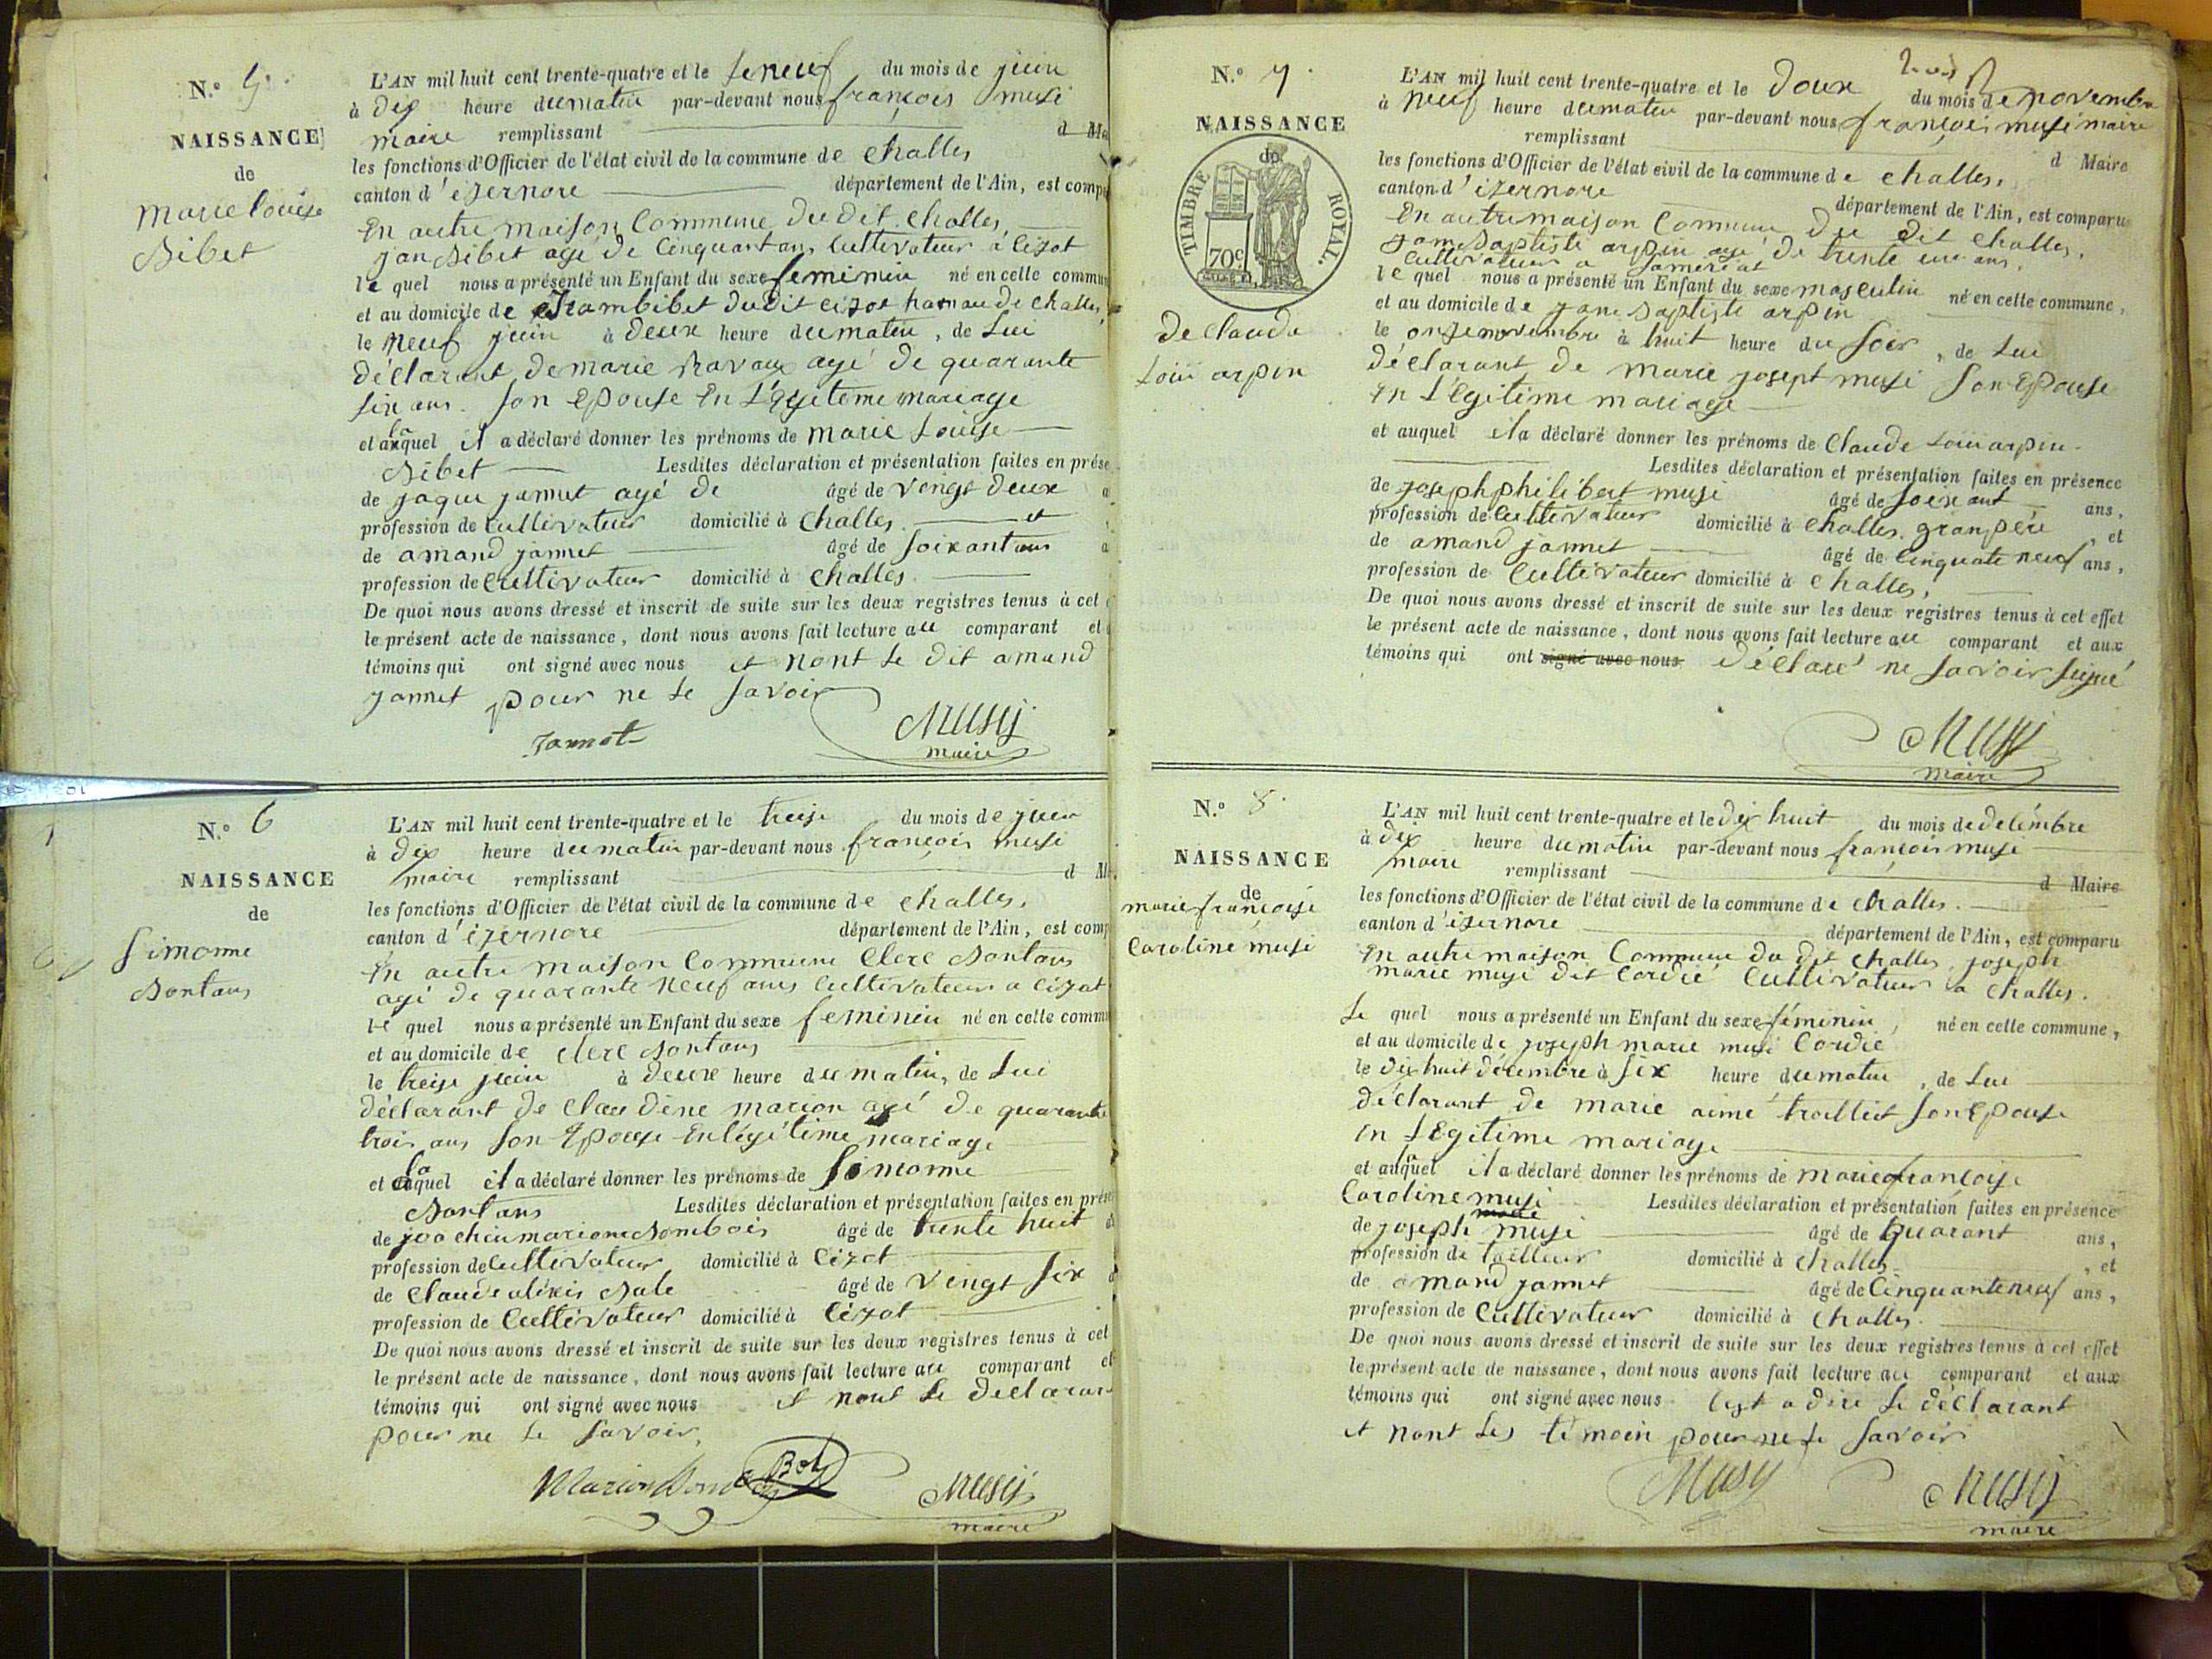 N.o 5.
NAISSANCE
de
marie louise
Bibet
L'AN mil huit cent trente-quatre et le le neuf du mois de juin
à dix heure du matin par-devant nous françois musi
maire remplissant d Ma
les fonctions d'Officier de l'état civil de la commune de challes
canton d'izernore département de l'Ain, est comp
En autre maison Commune du dit challes
jan Bibet agé de Cinquant ans Cultivateur a Cizot
le quel nous a présenté un Enfant du sexe feminin né en celle commun
et au domicile de jan bibet du dit cizot hamau de challes,
le neuf juin à deux heure du matin, de Lui
déclarant de marie ravaux agé de quarante
six ans. son Epouse En Légeteme mariage
et a la quel il a déclaré donner les prénoms de marie Louise
Bibet Lesdites déclaration et présentation faites en prése
de jaque jannet agé de âgé de vengt deux a
profession de cultivateur domicilié à challes. et
de amand jannet âgé de soixant ans a
profession de Cultivateur domicilié à challes.
De quoi nous avons dressé et inscrit de suite sur les deux registres tenus à cet
le présent acte de naissance, dont nous avons fait lecture au comparant et
témoins qui ont signé avec nous et nont le dit amand
jannet pour ne le savoir
Jannet Musy
maire
N.o 6
NAISSANCE
de
Simonne
Dontans
L'AN mil huit cent trente-quatre et le treise du mois de juin
à dix heure du matin par-devant nous françois musi
maire remplissant d M
les fonctions d'Officier de l'état civil de la commune de challes,
canton d'izernore département de l'Ain, est comp
En autre maison Commune Clere Dontans
agé de quarante neuf ans Cultivateur a Cizot
le quel nous a présenté un Enfant du sexe feminin né en celle commu
et au domicile de clere Dontans
le treise juin à deux heure du matin, de Lui
déclarant de Claudine marion agé de quarante
trois ans son Epouse En légétime mariage
et a la quel il a déclaré donner les prénoms de Simonne
Dontans Lesdites déclaration et présentation faites en prése
de joachin marion Dombois âgé de trente huit a
profession de Cultivateur domicilié à Cizot
de Claude alixis âgé de vingt six
profession de Cultivateur domicilié à Cizot
De quoi nous avons dressé et inscrit de suite sur les deux registres tenus à cet
le présent acte de naissance, dont nous avons fait lecture au comparant et
témoins qui ont signé avec nous et nont le declaran
pour ne le savoir,
Marion Musy
maire
N.o 7.
NAISSANCE
de
TIMBRE ROYAL.
70c
de claude
Loüi arpin
L'AN mil huit cent trente-quatre et le Doux du mois de novembre
à neuf heure du matin par-devant nous françois musi maire
remplissant d Maire
les fonctions d'Officier de l'état civil de la commune de challes,
canton d'izernore département de l'Ain, est comparu
En autre maison Commune Du dit challes,
jam Baptiste arpin agé De trente un ans,
Cultivateur a
le quel nous a présenté un Enfant du sexe masculin né en celle commune,
et au domicile de jam Baptiste arpin
le onse novembre à huit heure du soir, de Lui
déclarant de marie josept musi son Epouse
En Légitime mariage
et auquel il a déclaré donner les prénoms de Claude Loüi arpin.
Lesdites déclaration et présentation faites en présence
de joseph philibert musi âgé de soixant ans,
profession de Cultivateur domicilié à challes, granpère, et
de amand jannet âgé de Cinquate neuf ans,
profession de Cultivateur domicilié à challes,
De quoi nous avons dressé et inscrit de suite sur les deux registres tenus à cet effet
le présent acte de naissance, dont nous avons fait lecture au comparant et aux
témoins qui ont signé avec nous déclaré ne savoir signé
Musy
maire
N.o 8.
NAISSANCE
de
marie françoise
Caroline musi
L'AN mil huit cent trente-quatre et le dix huit du mois de délémbre
à dix heure du matin par-devant nous françois musi
maire remplissant d Maire
les fonctions d'Officier de l'état civil de la commune de challes.
canton d'izernore département de l'Ain, est comparu
En autre maison Commune du dit challes joseph
marie musi dit Cordié Cultivateur a challes.
Le quel nous a présenté un Enfant du sexe féminin, né en celle commune,
et au domicile de joseph marie musi Cordié
le dix huit décembre à six heure du matin, de Lui
déclarant de marie aimé trolliet son Epouse
En Légitime mariage
et a la quel il a déclaré donner les prénoms de marie françoise
Caroline musi Lesdites déclaration et présentation faites en présence
de joseph musi âgé de quarant ans,
profession de tailleur domicilié à challes, et
de amand jannet âgé de Cinquante neuf ans,
profession de Cultivateur domicilié à challes.
De quoi nous avons dressé et inscrit de suite sur les deux registres tenus à cet effet
le présent acte de naissance, dont nous avons fait lecture au comparant et aux
témoins qui ont signé avec nous cest a dire le déclarant
et nont les témoin pour ne le savoir
Musy Musy
maire